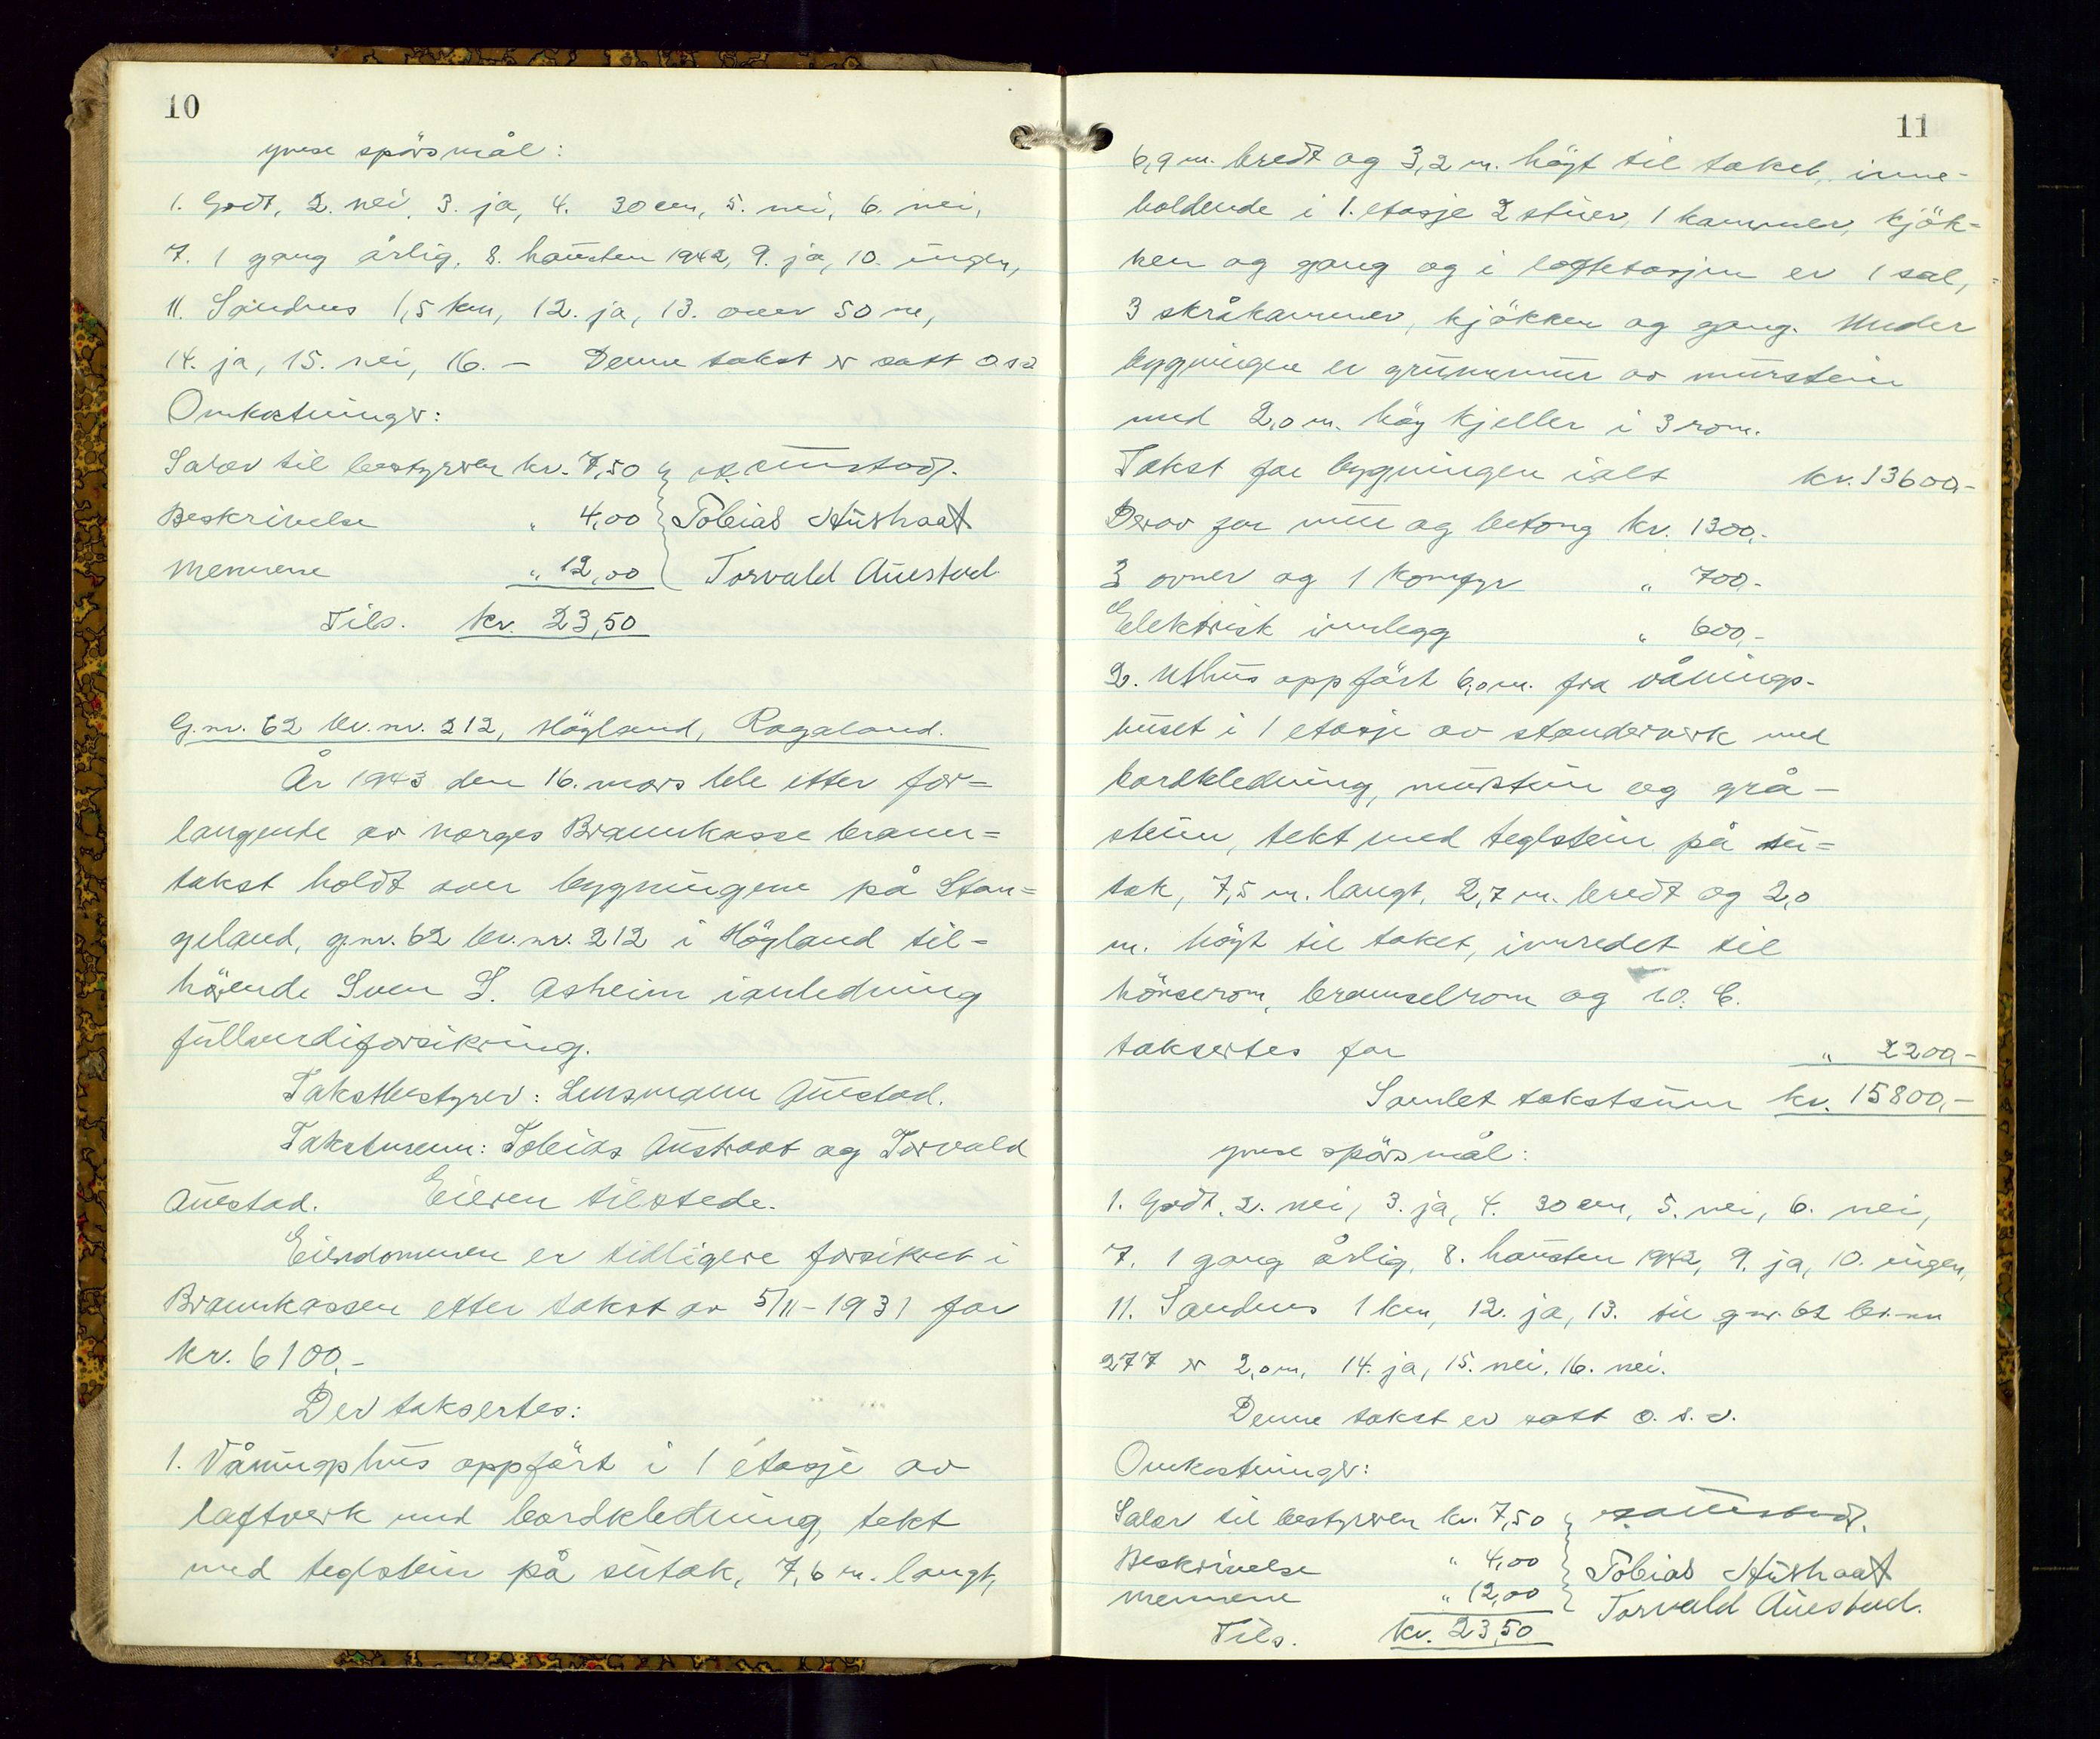 10
ymse spörsmål:
1. Godt, 2. nei, 3. ja, 4. 30 cm, 5. nei, 6. nei,
7. 1 gang årlig, 8. hausten 1942, 9. ja, 10. ingen,
11. Sandnes 1,5 km, 12. ja, 13. over 50 m,
14. ja, 15. nei, 16. – Denne takst er satt o s v
Omkostninger:
Salær til bestyreren kr. 7,50 Auestad.
Beskrivelse " 4,00 Tobias Austraat
Mennene " 12,00 Torvald Auestad
Tils. kr. 23,50
G.nr. 62 br.nr. 212, Höyland, Rogaland.
År 1943 den 16. mars ble etter for=
langende av Norges Brannkasse brann=
takst holdt over bygningene på Stan=
geland, g.nr. 62 br.nr. 212 i Höyland til=
hörende Sven S. Asheim ianledning
fullverdiforsikring.
Takstbestyrer: Lensmann Auestad.
Takstmenn: Tobias Austraat og Torvald
Auestad. Eieren tilstede.
Eiendommen er tidligere forsikret i
Brannkassen etter takst av 5/11-1931 for
kr. 6100.-
Der taksertes:
1. Våningshus oppfört i 1 etasje av
laftverk med bordkledning, tekt
med teglstein på sutak, 7,6 m. langt,
11
6,9 m. bredt og 3,2 m. höyt til taket, inne-
holdende i 1. etasje 2 stuer, 1 kammer, kjök=
ken og gang og i loftetasjen er 1 sal,
3 skråkammer, kjökken og gang. Under
bygningen er grunnmur av murstein
med 2,0 m. höy kjeller i 3 rom.
Takst for bygningen ialt kr. 13600,-
Derav for mur og betong kr. 1300,-
3 ovner og 1 komfyr " 700,-
Elektrisk innlegg " 600,-
2. Uthus oppfört 6,0 m. fra vånings-
huset i 1 etasje av stenderverk med
bordkledning, murstein og grå-
stein, tekt med teglstein på su=
tak, 7,5 m. langt, 2,7 m. bredt og 2,0
m. höyt til taket, innredet til
hönserom, brenselrom og W. C.
taksertes for " 2200,-
Samlet takstsum kr. 15800,-
ymse spörsmål:
1. Godt, 2. nei, 3. ja, 4. 30 cm, 5. nei, 6. nei,
7. 1 gang årlig, 8. hausten 1942, 9. ja, 10. ingen,
11. Sandnes 1 km, 12. ja, 13. til g.nr. 62 br.nr
277 er 2,0 m, 14. ja, 15. nei, 16. nei.
Denne takst er satt o. s. v.
Omkostninger:
Salær til bestyreren kr. 7,50 Auestad.
Beskrivelse " 4,00 Tobias Austraat
Mennene " 12,00 Torvald Auestad.
Tils. kr. 23,50